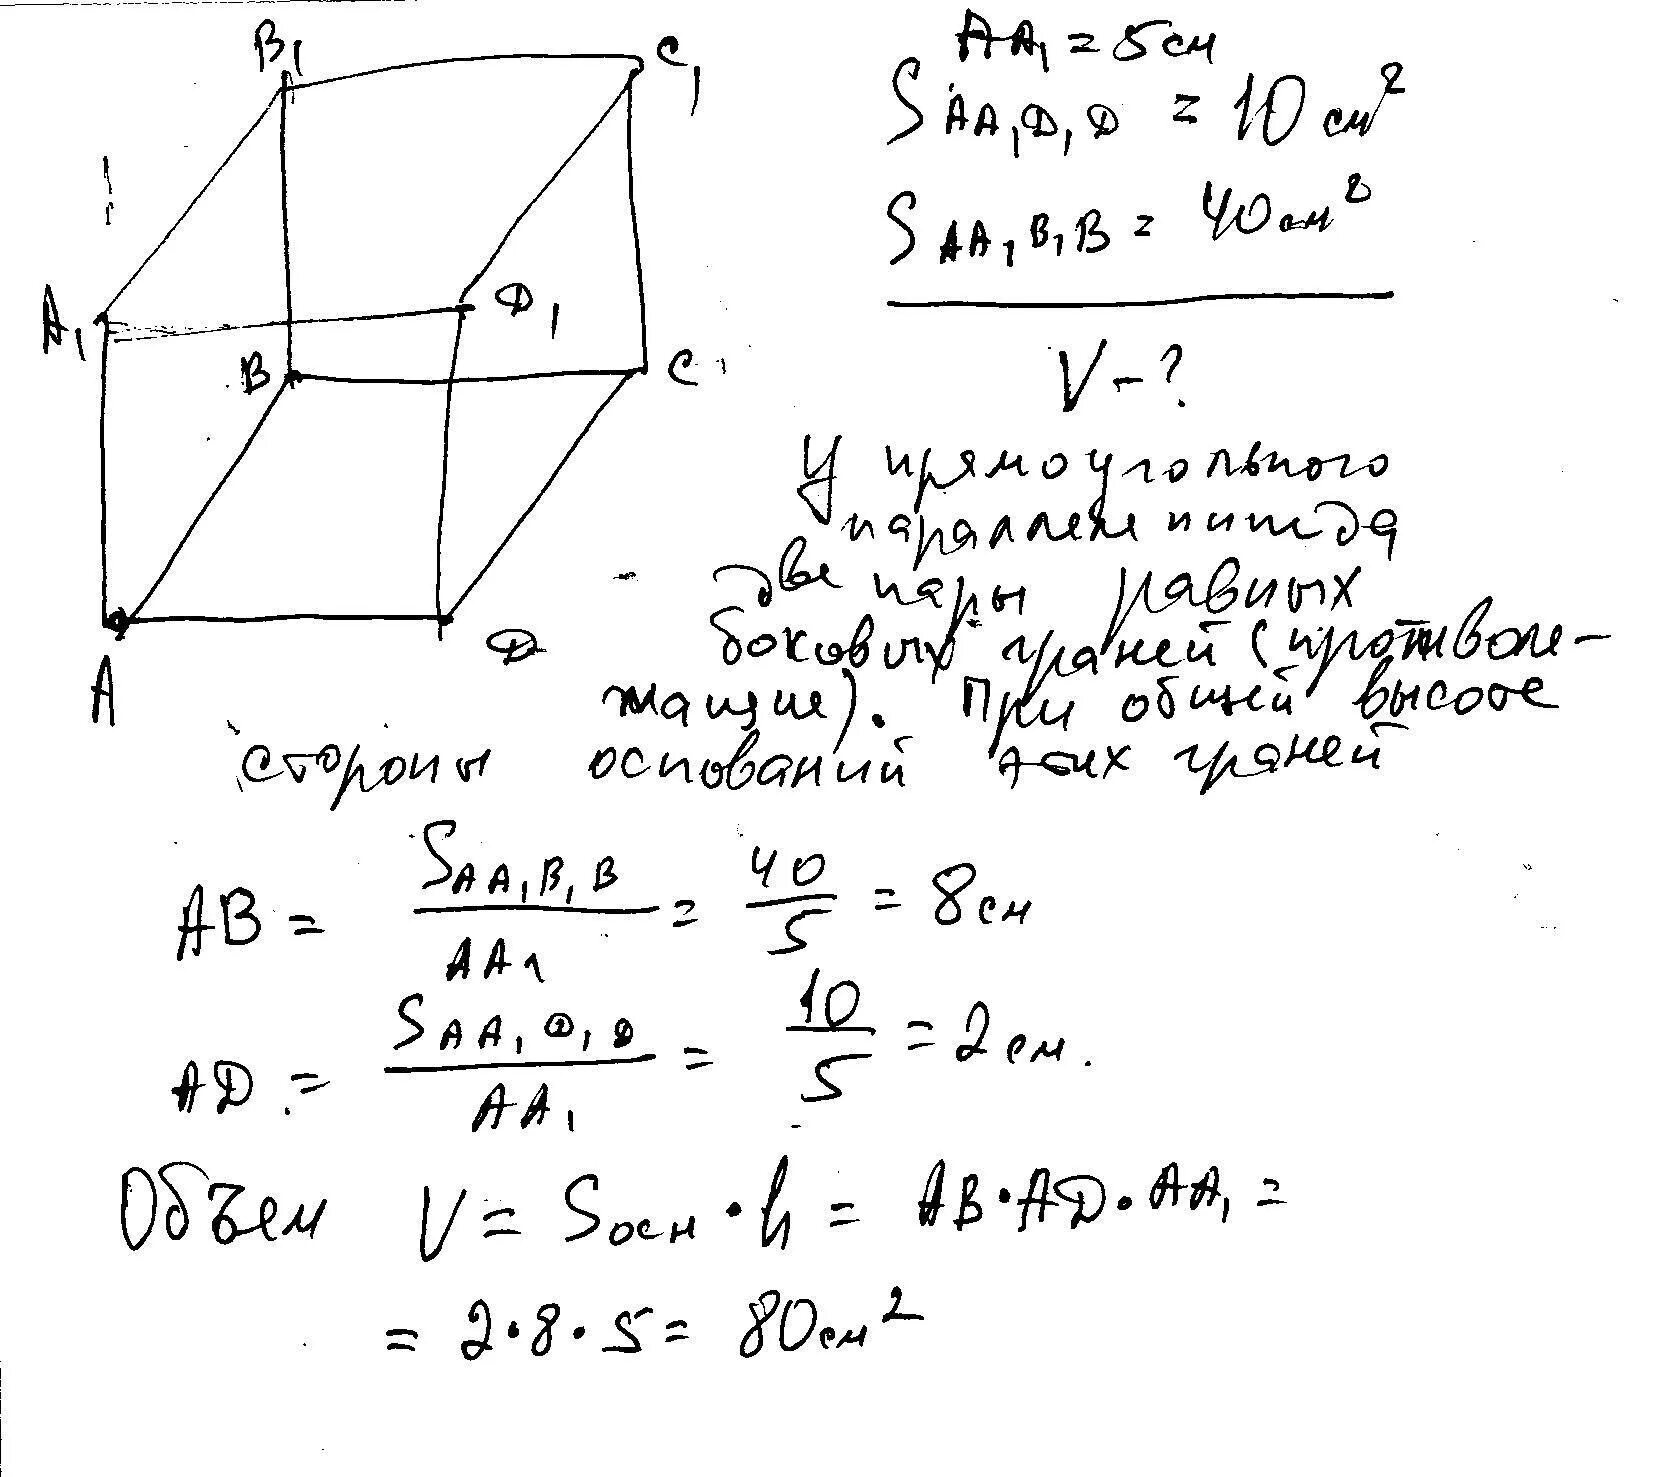 B₁
C₁
A₁
D₁
B
C
A
D
AA₁ = 5 см
S AA₁D₁D = 10 см²
S AA₁B₁B = 40 см²
V - ?
У прямоугольного
параллелепипеда
две пары равных
боковых граней (противоле-
жащие). При общей высоте
стороны оснований этих граней
AB = S AA₁B₁B / AA₁ = 40/5 = 8 см
AD = S AA₁D₁D / AA₁ = 10/5 = 2 см.
Объем V = Sосн · h = AB · AD · AA₁ =
= 2 · 8 · 5 = 80 см²